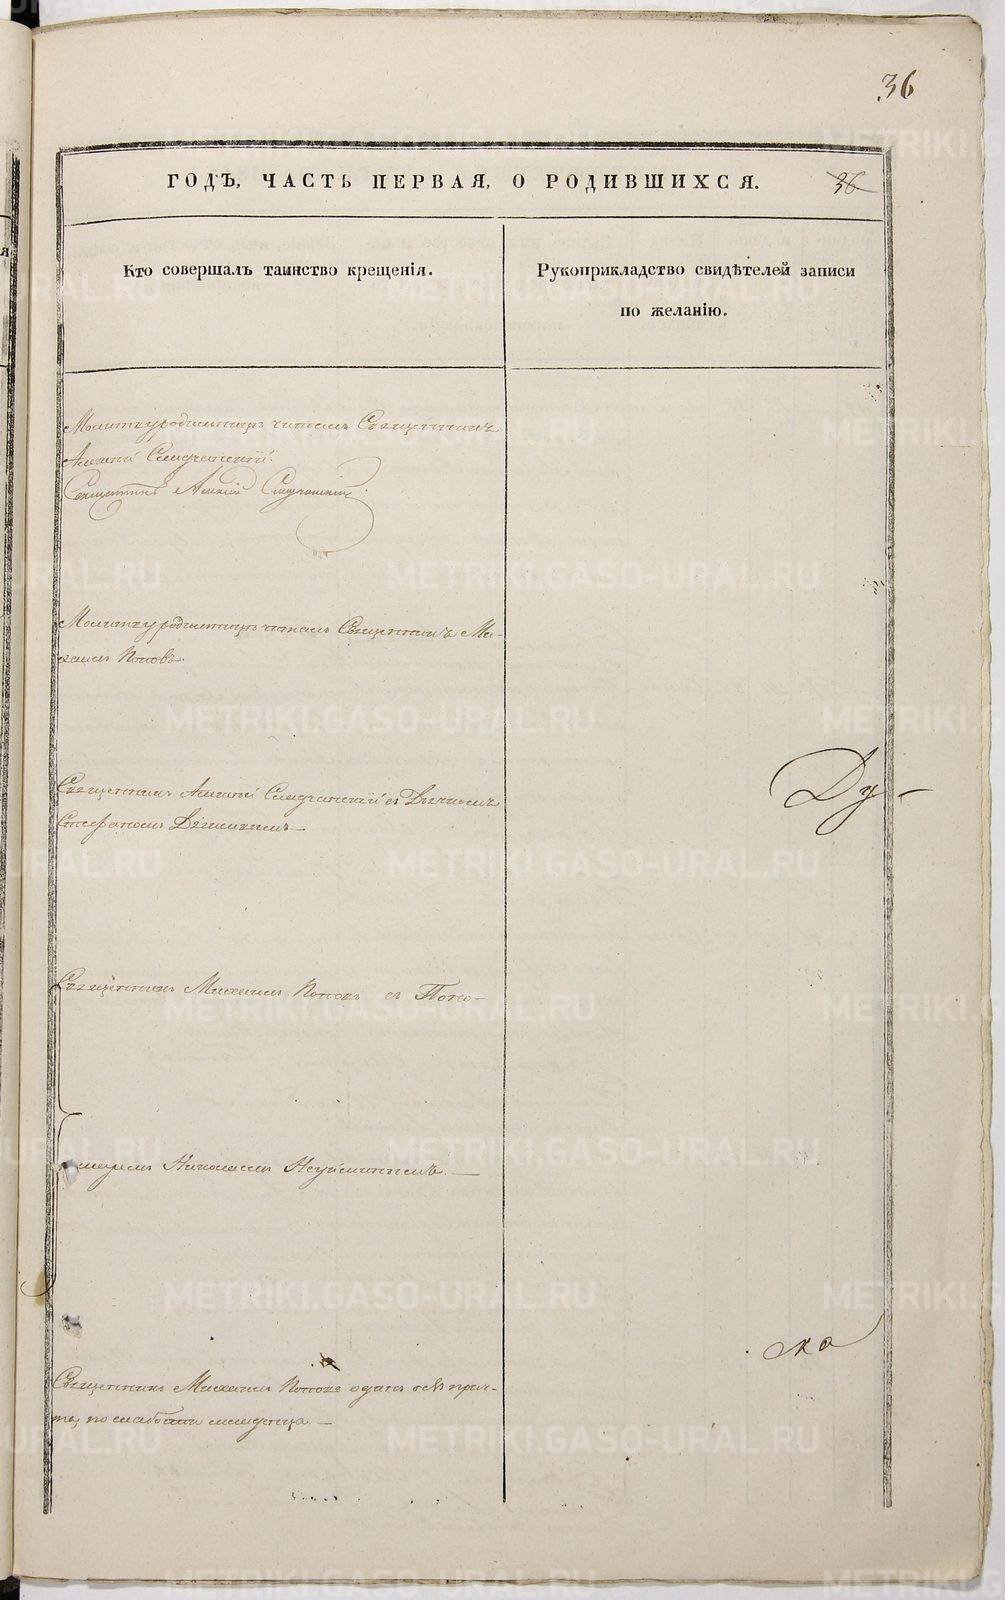 36
ГОДЪ, ЧАСТЬ ПЕРВАЯ, О РОДИВШИХСЯ. 36
Кто совершалъ таинство крещенія.
Рукоприкладство свидѣтелей записи
по желанію.
Молитву родильницѣ читалъ Священникъ
Алексій
Священникъ Алексій
Молитву родильницѣ читалъ Священникъ Ми-
хаилъ Поповъ.
Священникъ Алексій съ Дьячкомъ
Стефаномъ
Ду-
Священникъ Михаилъ Поповъ съ Поно-
маремъ Николаемъ Неуйминымъ. —
ка
Священникъ Михаилъ Поповъ одинъ безъ прич-
та, по слабости младенца. —
METRIKI.GASO-URAL.RU